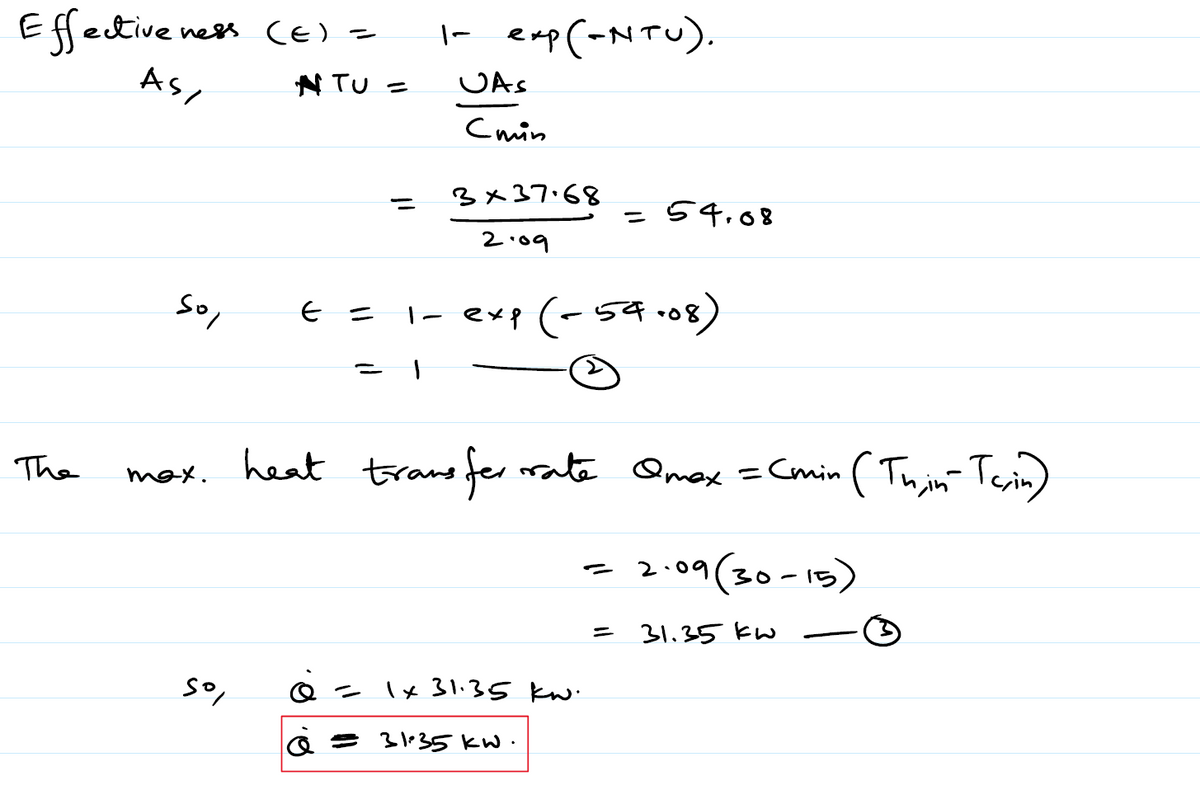 Effectiveness (ϵ) = 1- exp(-NTU).
As, NTU = UAs
Cmin
= 3×37.68 = 54.08
2.09
So, ϵ = 1- exp(-54.08)
= 1 — ②
The max. heat transfer rate Qmax = Cmin (Th,in - Tc,in)
= 2.09(30-15)
= 31.35 kW — ③
so, Q̇ = 1× 31.35 kW.
Q̇ = 31.35 kW.